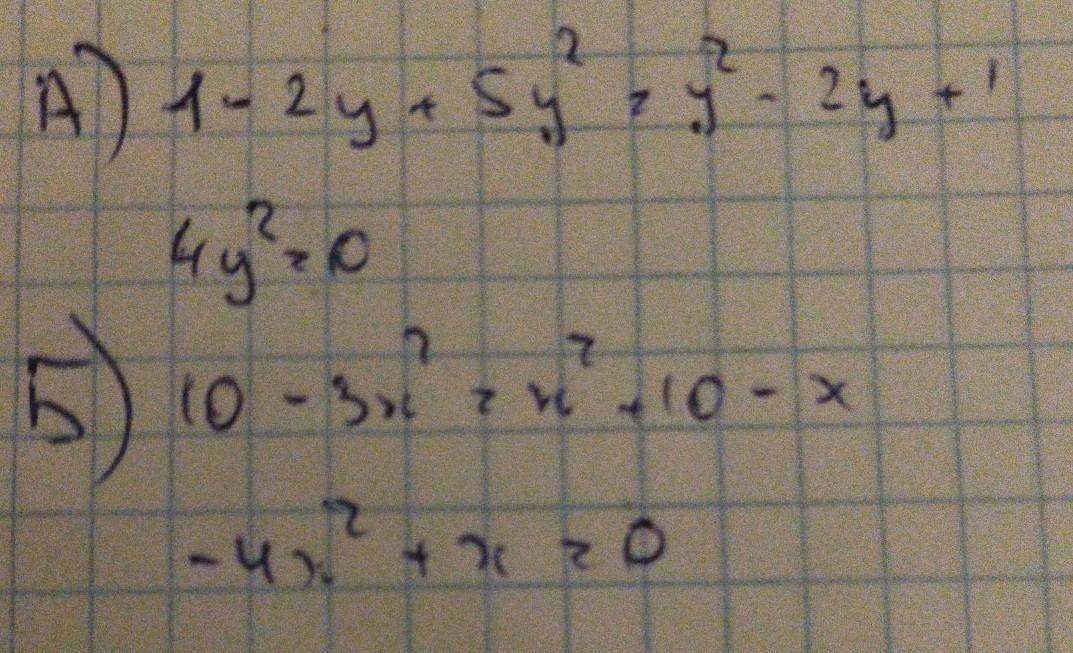 А) 1 - 2y + 5y² = y² - 2y + 1
4y² = 0
Б) 10 - 3x² = x² + 10 - x
-4x² + x = 0